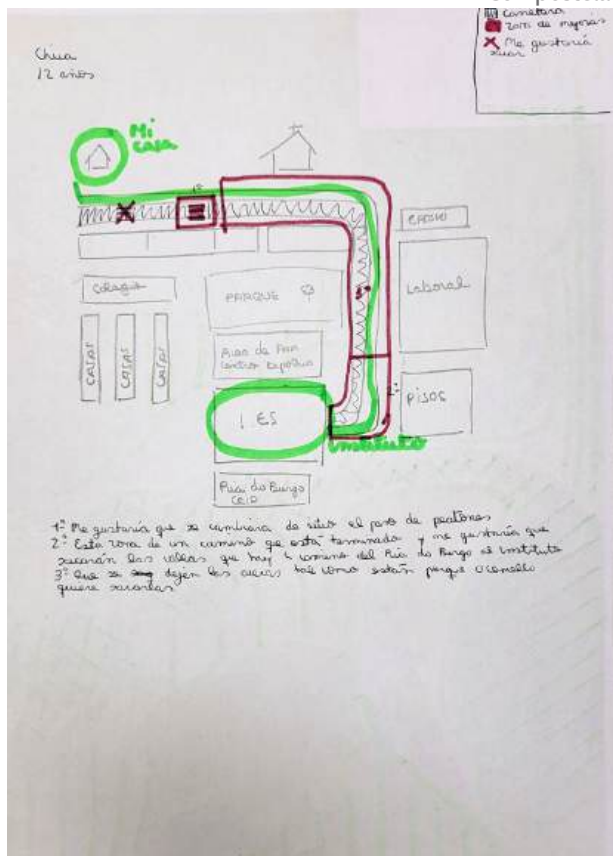 carretera
Zona de mejoras
Me gustaría
sacar
Chica
12 años
Mi
casa
1º
Colegio
PARQUE
Laboral
CASAS
CASAS
CASAS
Centro
IES
2º
PISOS
instituto
Ría do Burgo
CEIP
1º Me gustaría que se cambiara de sitio el paso de peatones
2º Esta zona de un camino que está terminado y me gustaría que
sacarán las vallas que hay camino del Ría do Burgo al instituto
3º Que se dejen las aceras tal como están porque o concello
quiere sacarlas